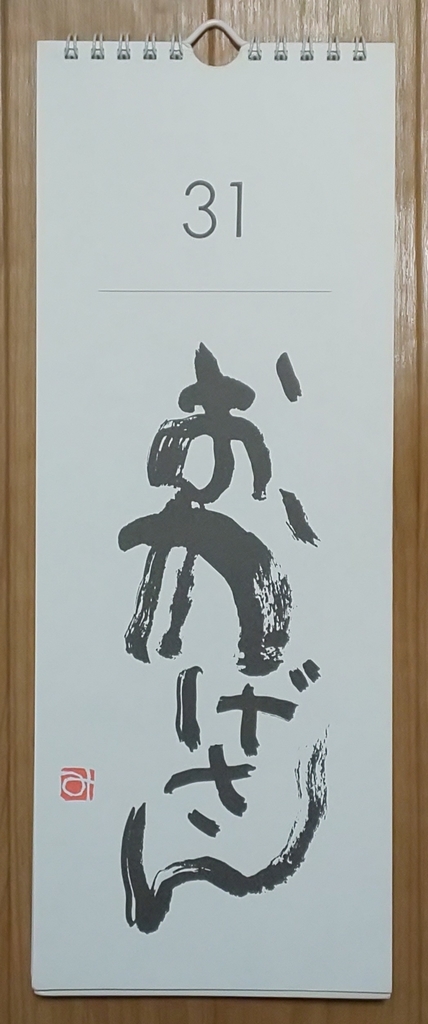 31
おかげさん
み